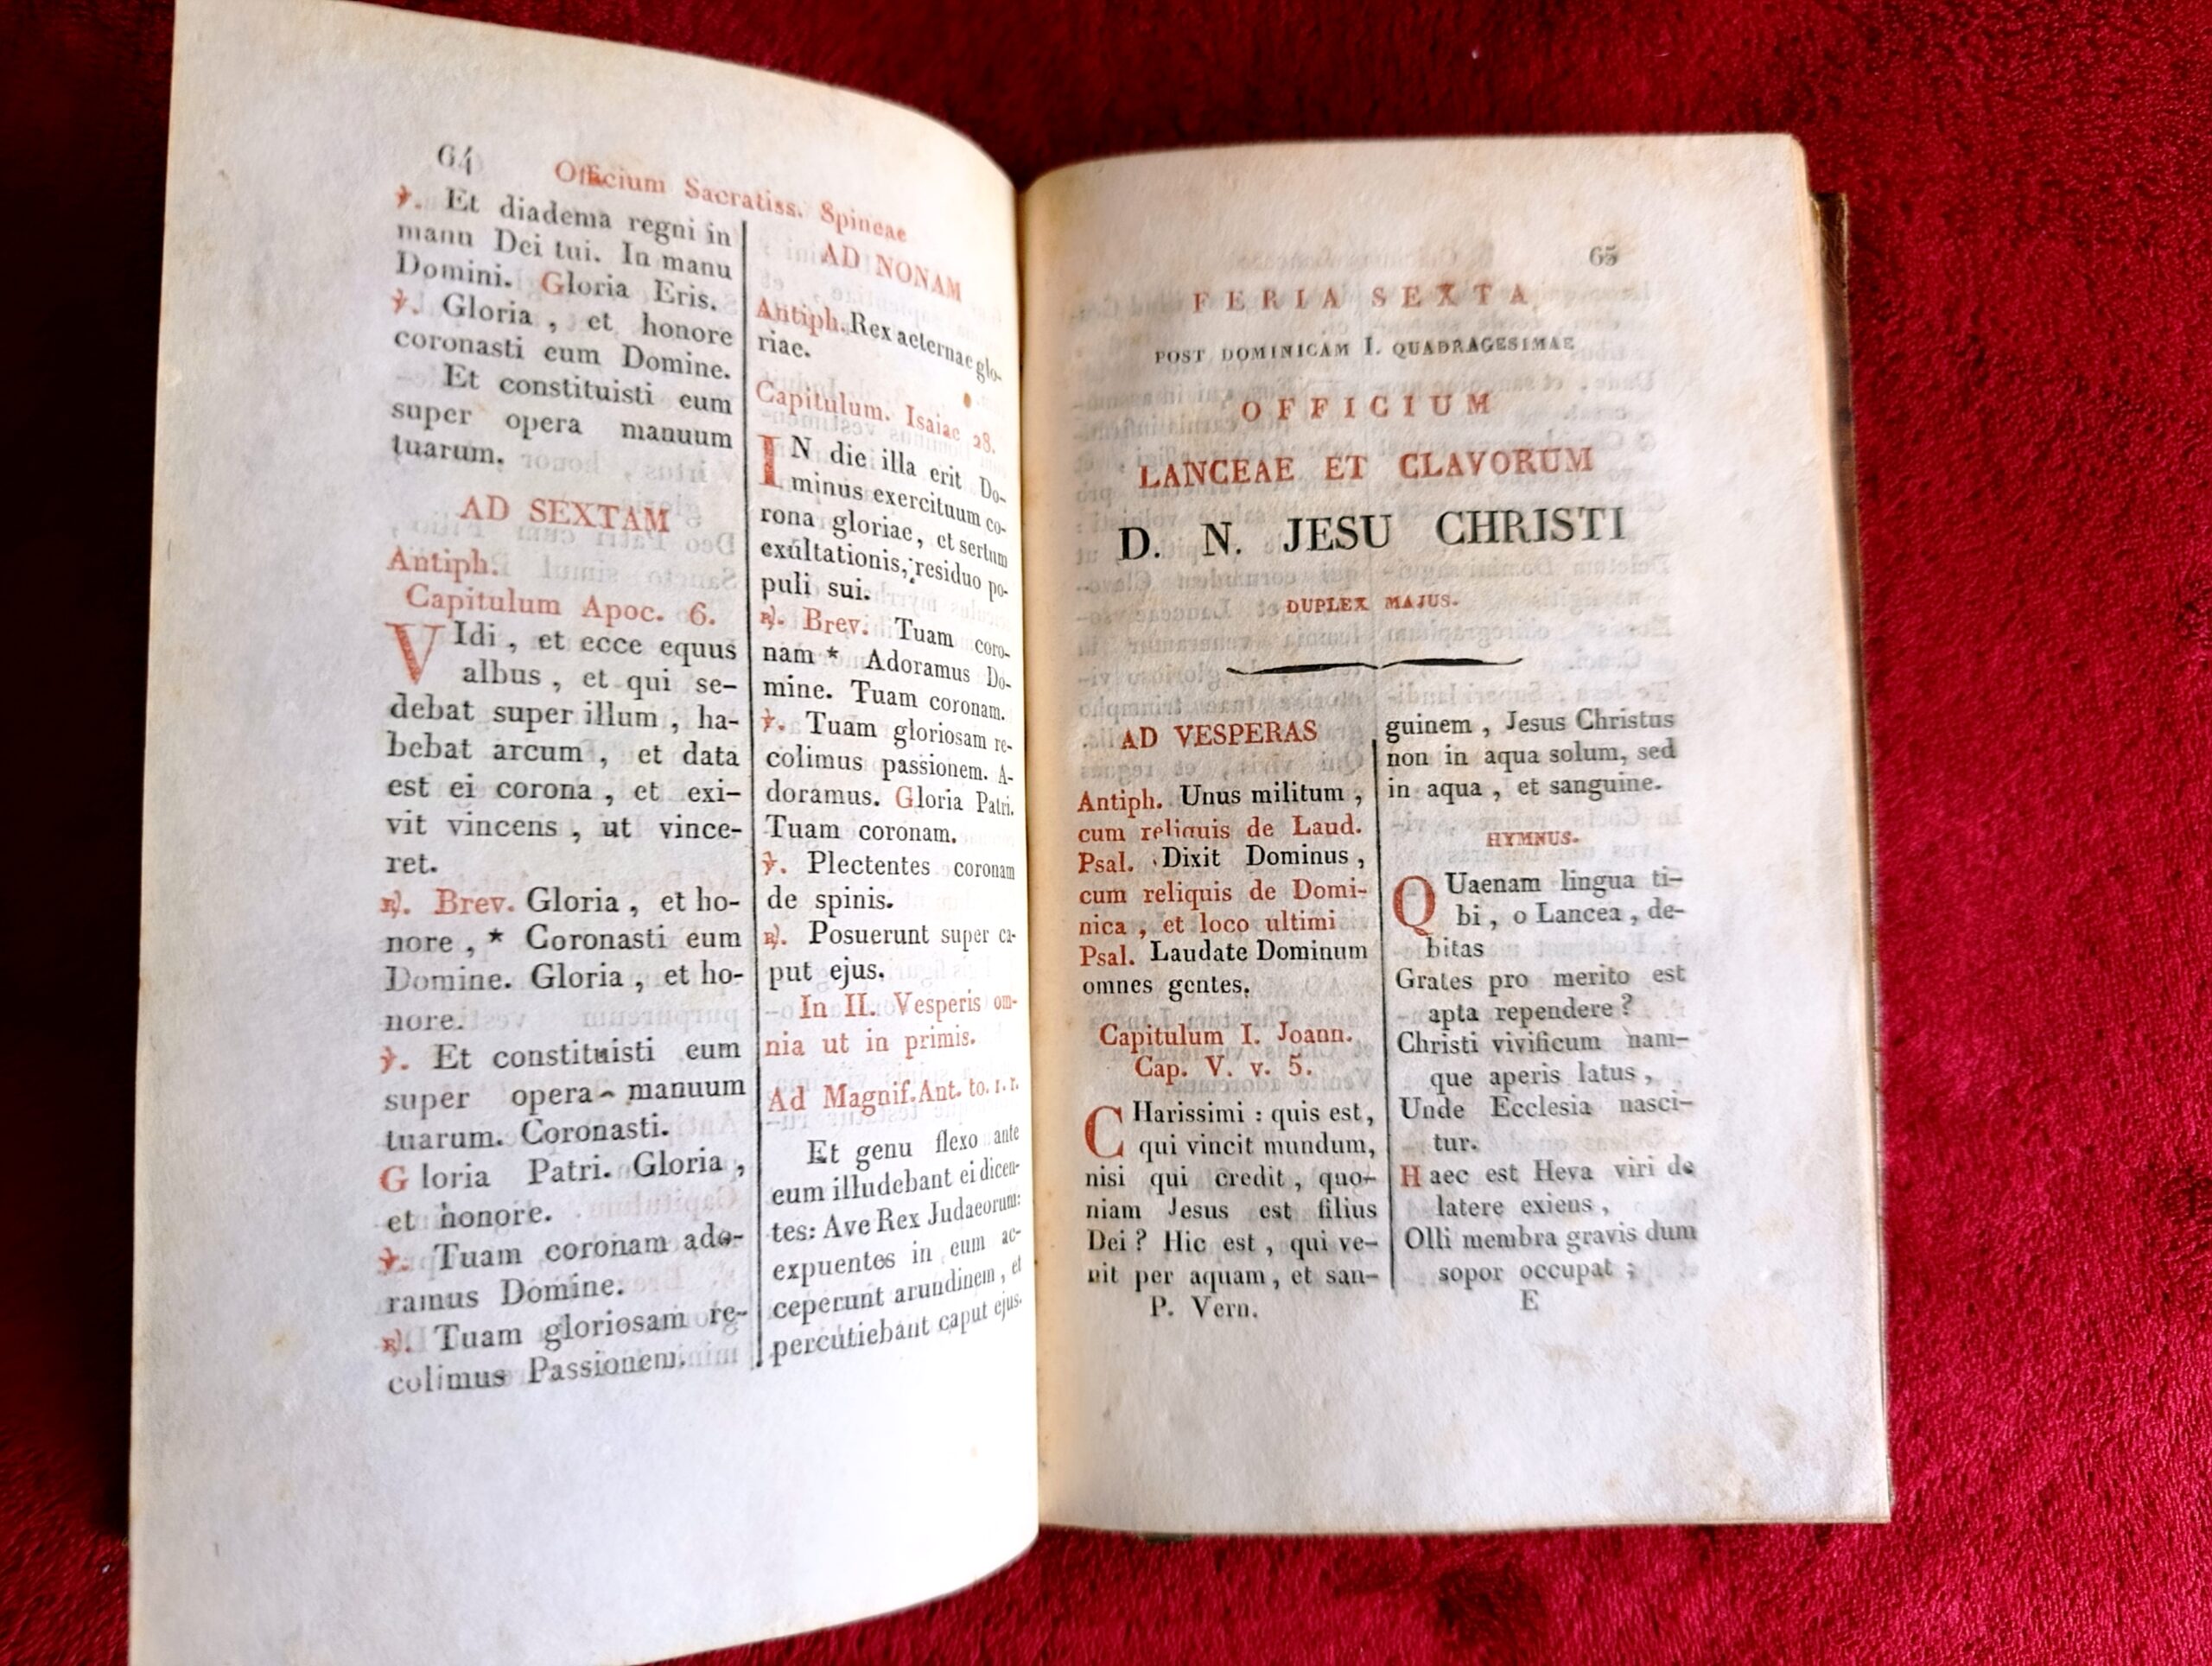 64
Officium Sacratiss. Spineae
℣. Et diadema regni in
manu Dei tui. In manu
Domini. Gloria Eris.
℣. Gloria , et honore
coronasti eum Domine.
Et constituisti eum
super opera manuum
tuarum.
AD SEXTAM
Antiph.
Capitulum Apoc. 6.
VIdi , et ecce equus
albus , et qui se-
debat super illum , ha-
bebat arcum , et data
est ei corona , et exi-
vit vincens , ut vince-
ret.
℟. Brev. Gloria , et ho-
nore , * Coronasti eum
Domine. Gloria , et ho-
nore.
℣. Et constituisti eum
super opera manuum
tuarum. Coronasti.
Gloria Patri. Gloria ,
et honore.
℣. Tuam coronam ado-
ramus Domine.
℟. Tuam gloriosam re-
colimus Passionem.
AD NONAM
Antiph. Rex aeternae glo-
riae.
Capitulum. Isaiae 28.
IN die illa erit Do-
minus exercituum co-
rona gloriae, et sertum
exultationis, residuo po-
puli sui.
℟. Brev. Tuam coro-
nam * Adoramus Do-
mine. Tuam coronam.
℣. Tuam gloriosam re-
colimus passionem. A-
doramus. Gloria Patri.
Tuam coronam.
℣. Plectentes coronam
de spinis.
℟. Posuerunt super ca-
put ejus.
In II. Vesperis om-
nia ut in primis.
Ad Magnif. Ant. to. 1. r.
Et genu flexo ante
eum illudebant ei dicen-
tes: Ave Rex Judaeorum:
expuentes in eum ac-
ceperunt arundinem, et
percutiebant caput ejus.
65
FERIA SEXTA
POST DOMINICAM I. QUADRAGESIMAE
OFFICIUM
LANCEAE ET CLAVORUM
D. N. JESU CHRISTI
DUPLEX MAJUS.
AD VESPERAS
Antiph. Unus militum ,
cum reliquis de Laud.
Psal. Dixit Dominus ,
cum reliquis de Domi-
nica , et loco ultimi
Psal. Laudate Dominum
omnes gentes.
Capitulum I. Joann.
Cap. V. v. 5.
CHarissimi : quis est,
qui vincit mundum,
nisi qui credit , quo-
niam Jesus est filius
Dei ? Hic est , qui ve-
nit per aquam, et san-
P. Vern.
guinem , Jesus Christus
non in aqua solum, sed
in aqua , et sanguine.
HYMNUS.
QUaenam lingua ti-
bi , o Lancea , de-
bitas
Grates pro merito est
apta rependere ?
Christi vivificum nam-
que aperis latus ,
Unde Ecclesia nasci-
tur.
Haec est Heva viri de
latere exiens ,
Olli membra gravis dum
sopor occupat ;
E